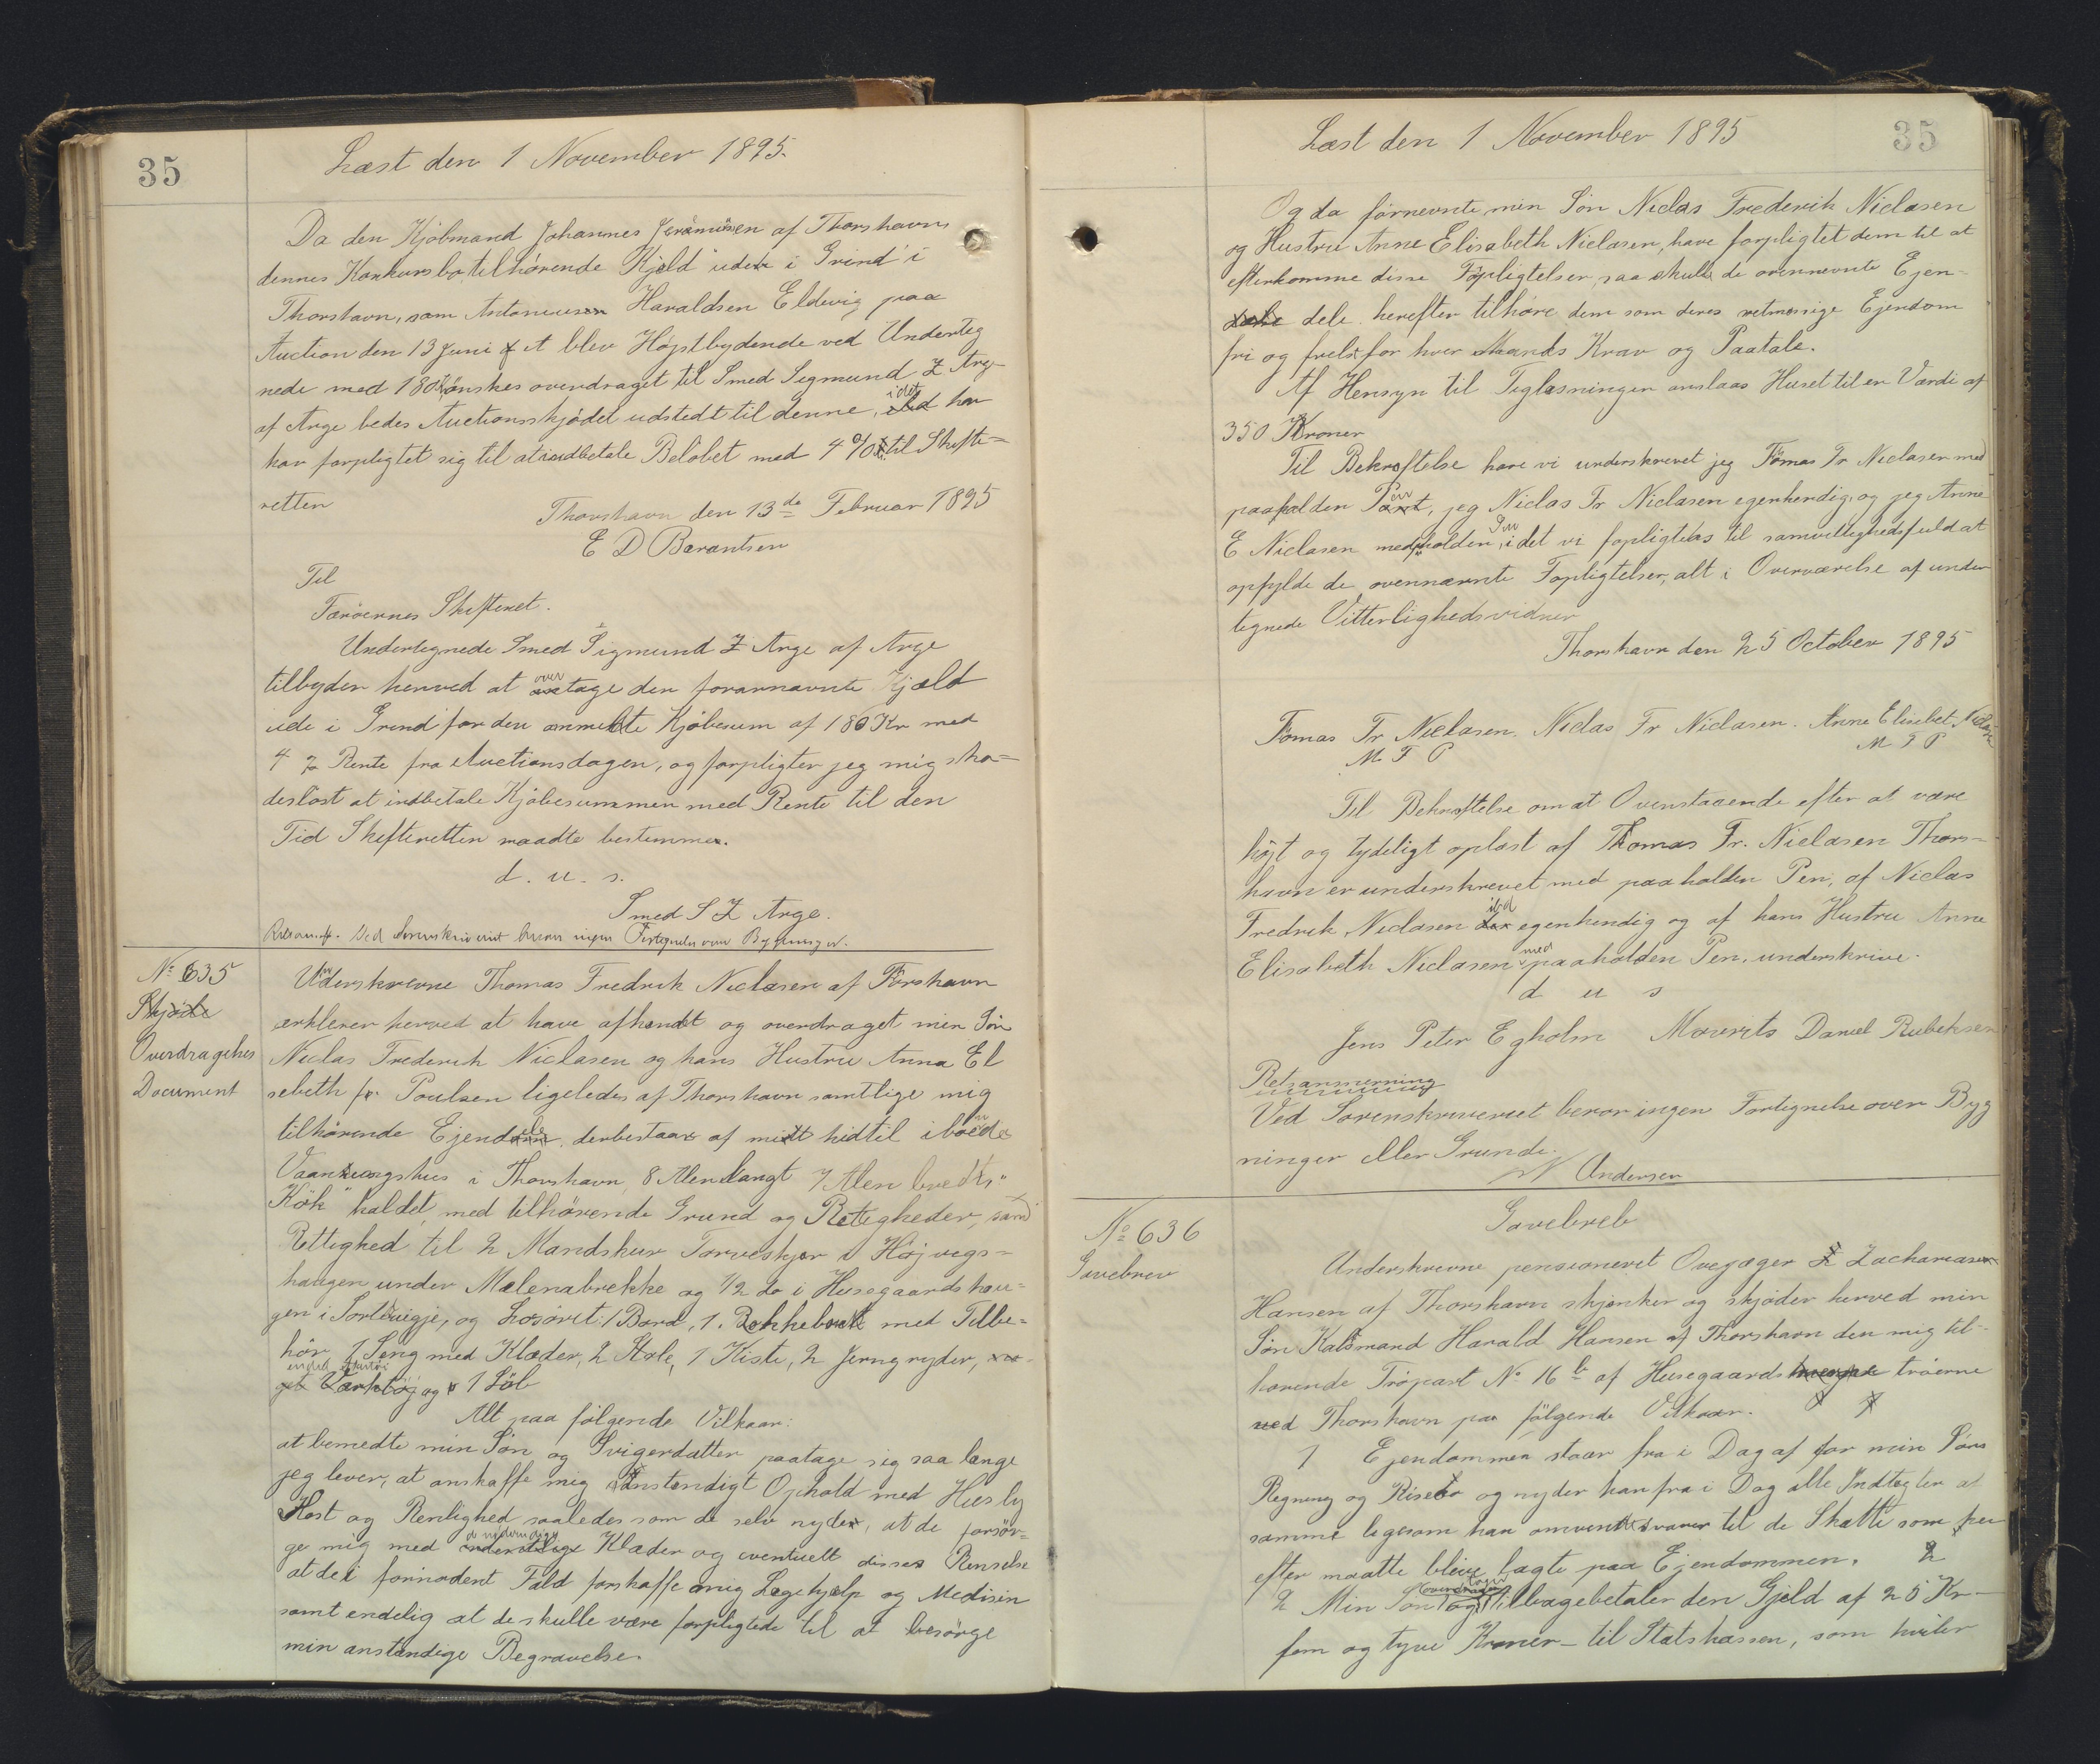 35
Læst den 1 November 1895.
Da den Kjöbmand Johannes Jeremiasen af Thorshavns
dennes Konkursbo tilhörende Kjeld uder i Grind i
Thorshavn, som Antoniusen Haraldsen Eldevig paa
Auction den 13 Juni f A blev Højstbydende ved Underteg
nede med 180 önskes overdraget til Smed Segmund Z Arge
af Arge bedes Auctionsskjödet udstedt til denne, idet han
har forpligtet sig til at indbetale Belöbet med 4 % til Skifte=
retten
Thorshavn den 13de Februar 1895
E D Bærantsen
Til
Færöernes Skifteret.
Undertegnede Smed Sigmund Z Arge af Arge
tilbyder herved at overtage den forannævnte Kjæld
ude i Grind for den ommeldte Kjöbesum af 180 Kr med
4 % Rente fra Auctionsdagen, og forpligter jeg mig ska=
deslöst at indbetale Kjöbesummen med Rente til den
Tid Skifteretten maatte bestemme.
d. u. s.
Smed S Z Arge.
Retsanm. Ved Sorenskriveriet beror ingen Fortegnelse over Bygninger.
No 635
Skjöde
Overdragelses
Document
Underskrevne Thomas Fredrik Niclasen af Torshavn
erklerer herved at have afhendt og overdraget min Sön
Niclas Frederik Niclasen og hans Hustru Anna El
sebeth f. Poulsen ligeledes af Thorshavn samtlige mig
tilhörende Ejendele, der bestaar af mit hidtil iboede
Vaaningshus i Thorshavn, 8 Alen langt 7 Alen bredt, "
Kök" kaldet, med tilhörende Grund og Retigheder, samt
Rettighed til 2 Mandskur Torveskjær i Höjvigs=
haugen under Malenabrekke og 1/2 do i Husegaardshau=
gen i Sortevigje, og Losöret: 1 Bord, 1. Rokkebænk med Tilbe=
hör, 1 Seng med Klæder, 2 Stole, 1 Kiste, 2 Jerngryder, no
get Værktöj og 1 Löb
Alt paa fölgende Vilkaar:
at bemedte min Sön og Svigerdatter paatage sig saa længe
jeg lever, at anskaffe mig anstændigt Ophold med Husly
Kost og Renlighed saaledes som de selv nyder, at de forsör=
ge mig med de nödvendige Klæder og eventuelt disses Renselse
at de i fornödent Fald forskaffe mig Lægehjælp og Medisin
samt endelig at de skulle være forpligtede til at besörge
min anstændige Begravelse.
35
Læst den 1 November 1895
Og da förnevnte min Sön Niclas Frederik Niclasen
og Hustru Anne Elisabeth Niclasen, have forpligtet dem til at
efterkomme disse Forpligtelser, saa skulle de ovennevnte Ejen-
dele herefter tilhöre dem som deres retmæssige Ejendom
fri og frels for hver Mands Krav og Paatale.
Af Hensyn til Tinglæsningen anslaas Huset til en Værdi af
350 Kroner
Til Bekræftelse have vi underskrevet jeg Tomas Fr Niclasen med
paaholden Pen, jeg Niclas Fr Niclasen egenhendig, og jeg Anne
E Niclasen med paaholden Pen, idet vi forpligtes til samvittighedsfuld at
opfylde de ovennævnte Forpligtelser, alt i Overværelse af under
tegnede Vitterlighedsvidner
Thorshavn den 25 October 1895
Tomas Fr Niclasen. Niclas Fr Niclasen. Anne Elisebet Niclasen
M F P
M F P
Til Bekræftelse om at Ovenstaaende efter at være
höjt og tydeligt oplæst af Thomas Fr. Niclasen Thors=
havn er underskrevet med paaholden Pen, af Niclas
Fredrik Niclasen ibd egenhendig og af hans Hustru Anne
Elisabeth Niclasen med paaholden Pen, underskrive.
d u s
Jens Peter Egholm Mourits Daniel Rubeksen
Retsanmerning
Ved Sorenskriveriet beror ingen Fortegnelse over Byg
ninger eller Grunde.
N Andersen
No 636
Gavebrev
Gavebreb
Underskrevne pensioneret Overjæger Z Zachariasen
Hansen af Thorshavn skjenker og skjöder herved min
Sön Kalsmand Harald Hansen af Thorshavn den mig til-
hörende Tröpart No 16 b af Husegaards tröerne
ved Thorshavn paa fölgende Vilkaar.
1 Ejendommen staar fra i Dag af for min Söns
Regning og Riseko og nyder han fra i Dag alle Indtægter af
samme ligesom han omvendt svarer til de Skatte som her
efter maatte blive lagte paa Ejendommen. 2
2 Min Sön overtager og tilbagebetaler den Gjeld af 25 Kr -
fem og tyve Kroner - til Statskassen, som hviler